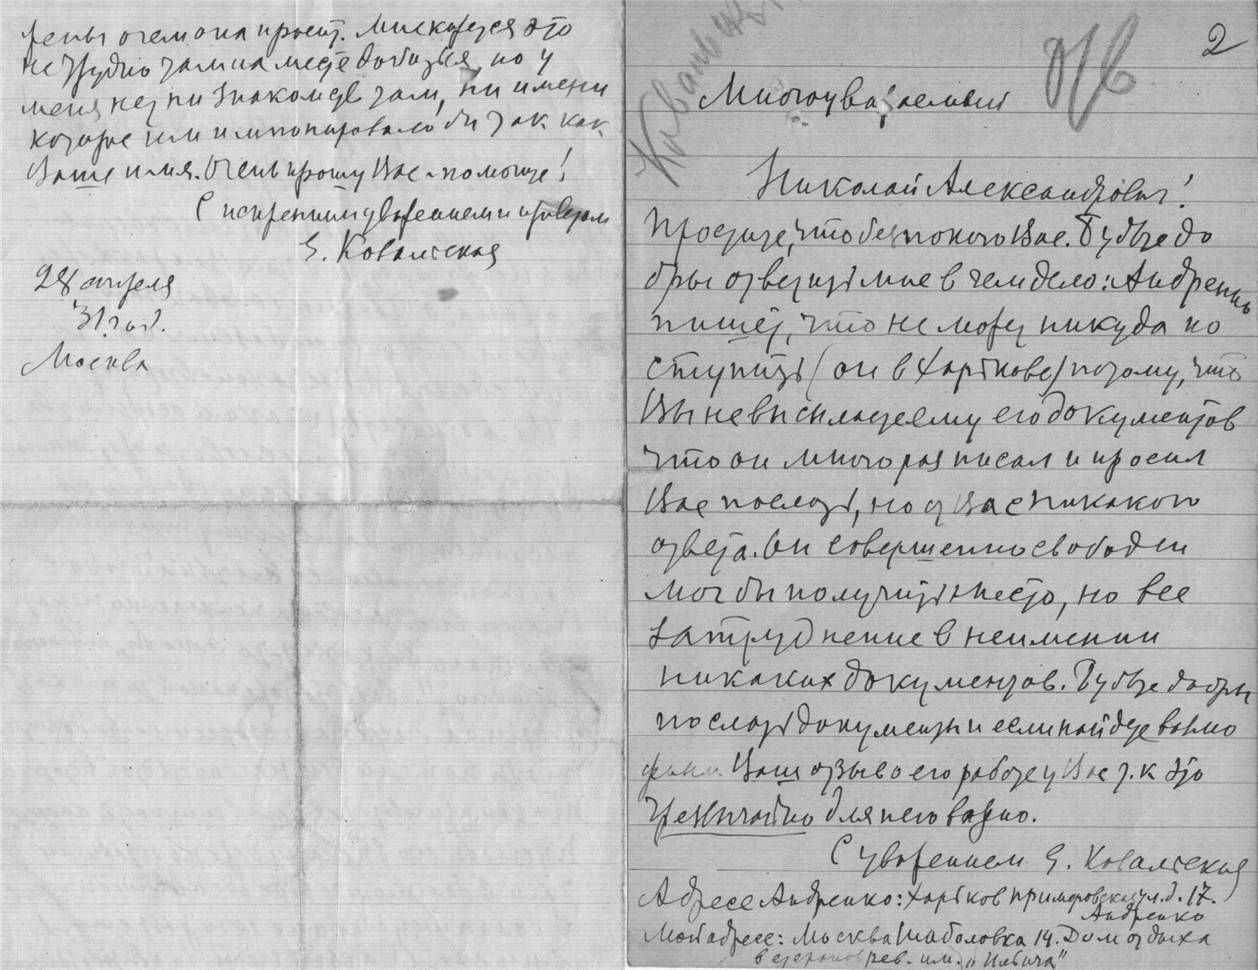 очем она просит. Мне кажется это
не трудно там на месте добиться, но у
меня нет ни знакомств там, ни имени
которое им импонировало бы так как
Ваше имя. Очень прошу Вас помогите!
С искренним уважением и приветом
Е. Ковальская
28 апреля
31 год.
Москва
2
Многоуважаемый
Николай Александрович!
Простите, что беспокою Вас. Будьте до
бры ответить мне в чем дело: Андреенко
пишет, что не может никуда по
ступить (он в Харькове) потому, что
Вы не высылаете ему его документов
что он много раз писал и просил
Вас послать, но от Вас никакого
ответа. Он совершенно свободен
мог бы получить место, но все
затруднение в неимении
никаких документов. Будьте добры
послать документы и если найдете возмо
жным Ваш отзыв о его работе у Вас т.к это
чрезвычайно для него важно.
С уважением Е. Ковальская
Адрес Андреенко: Харьков ул. д. 17.
Андреенко
Мой адрес: Москва Шаболовка 14. Дом отдыха
ветеранов рев. им. „Ильича"